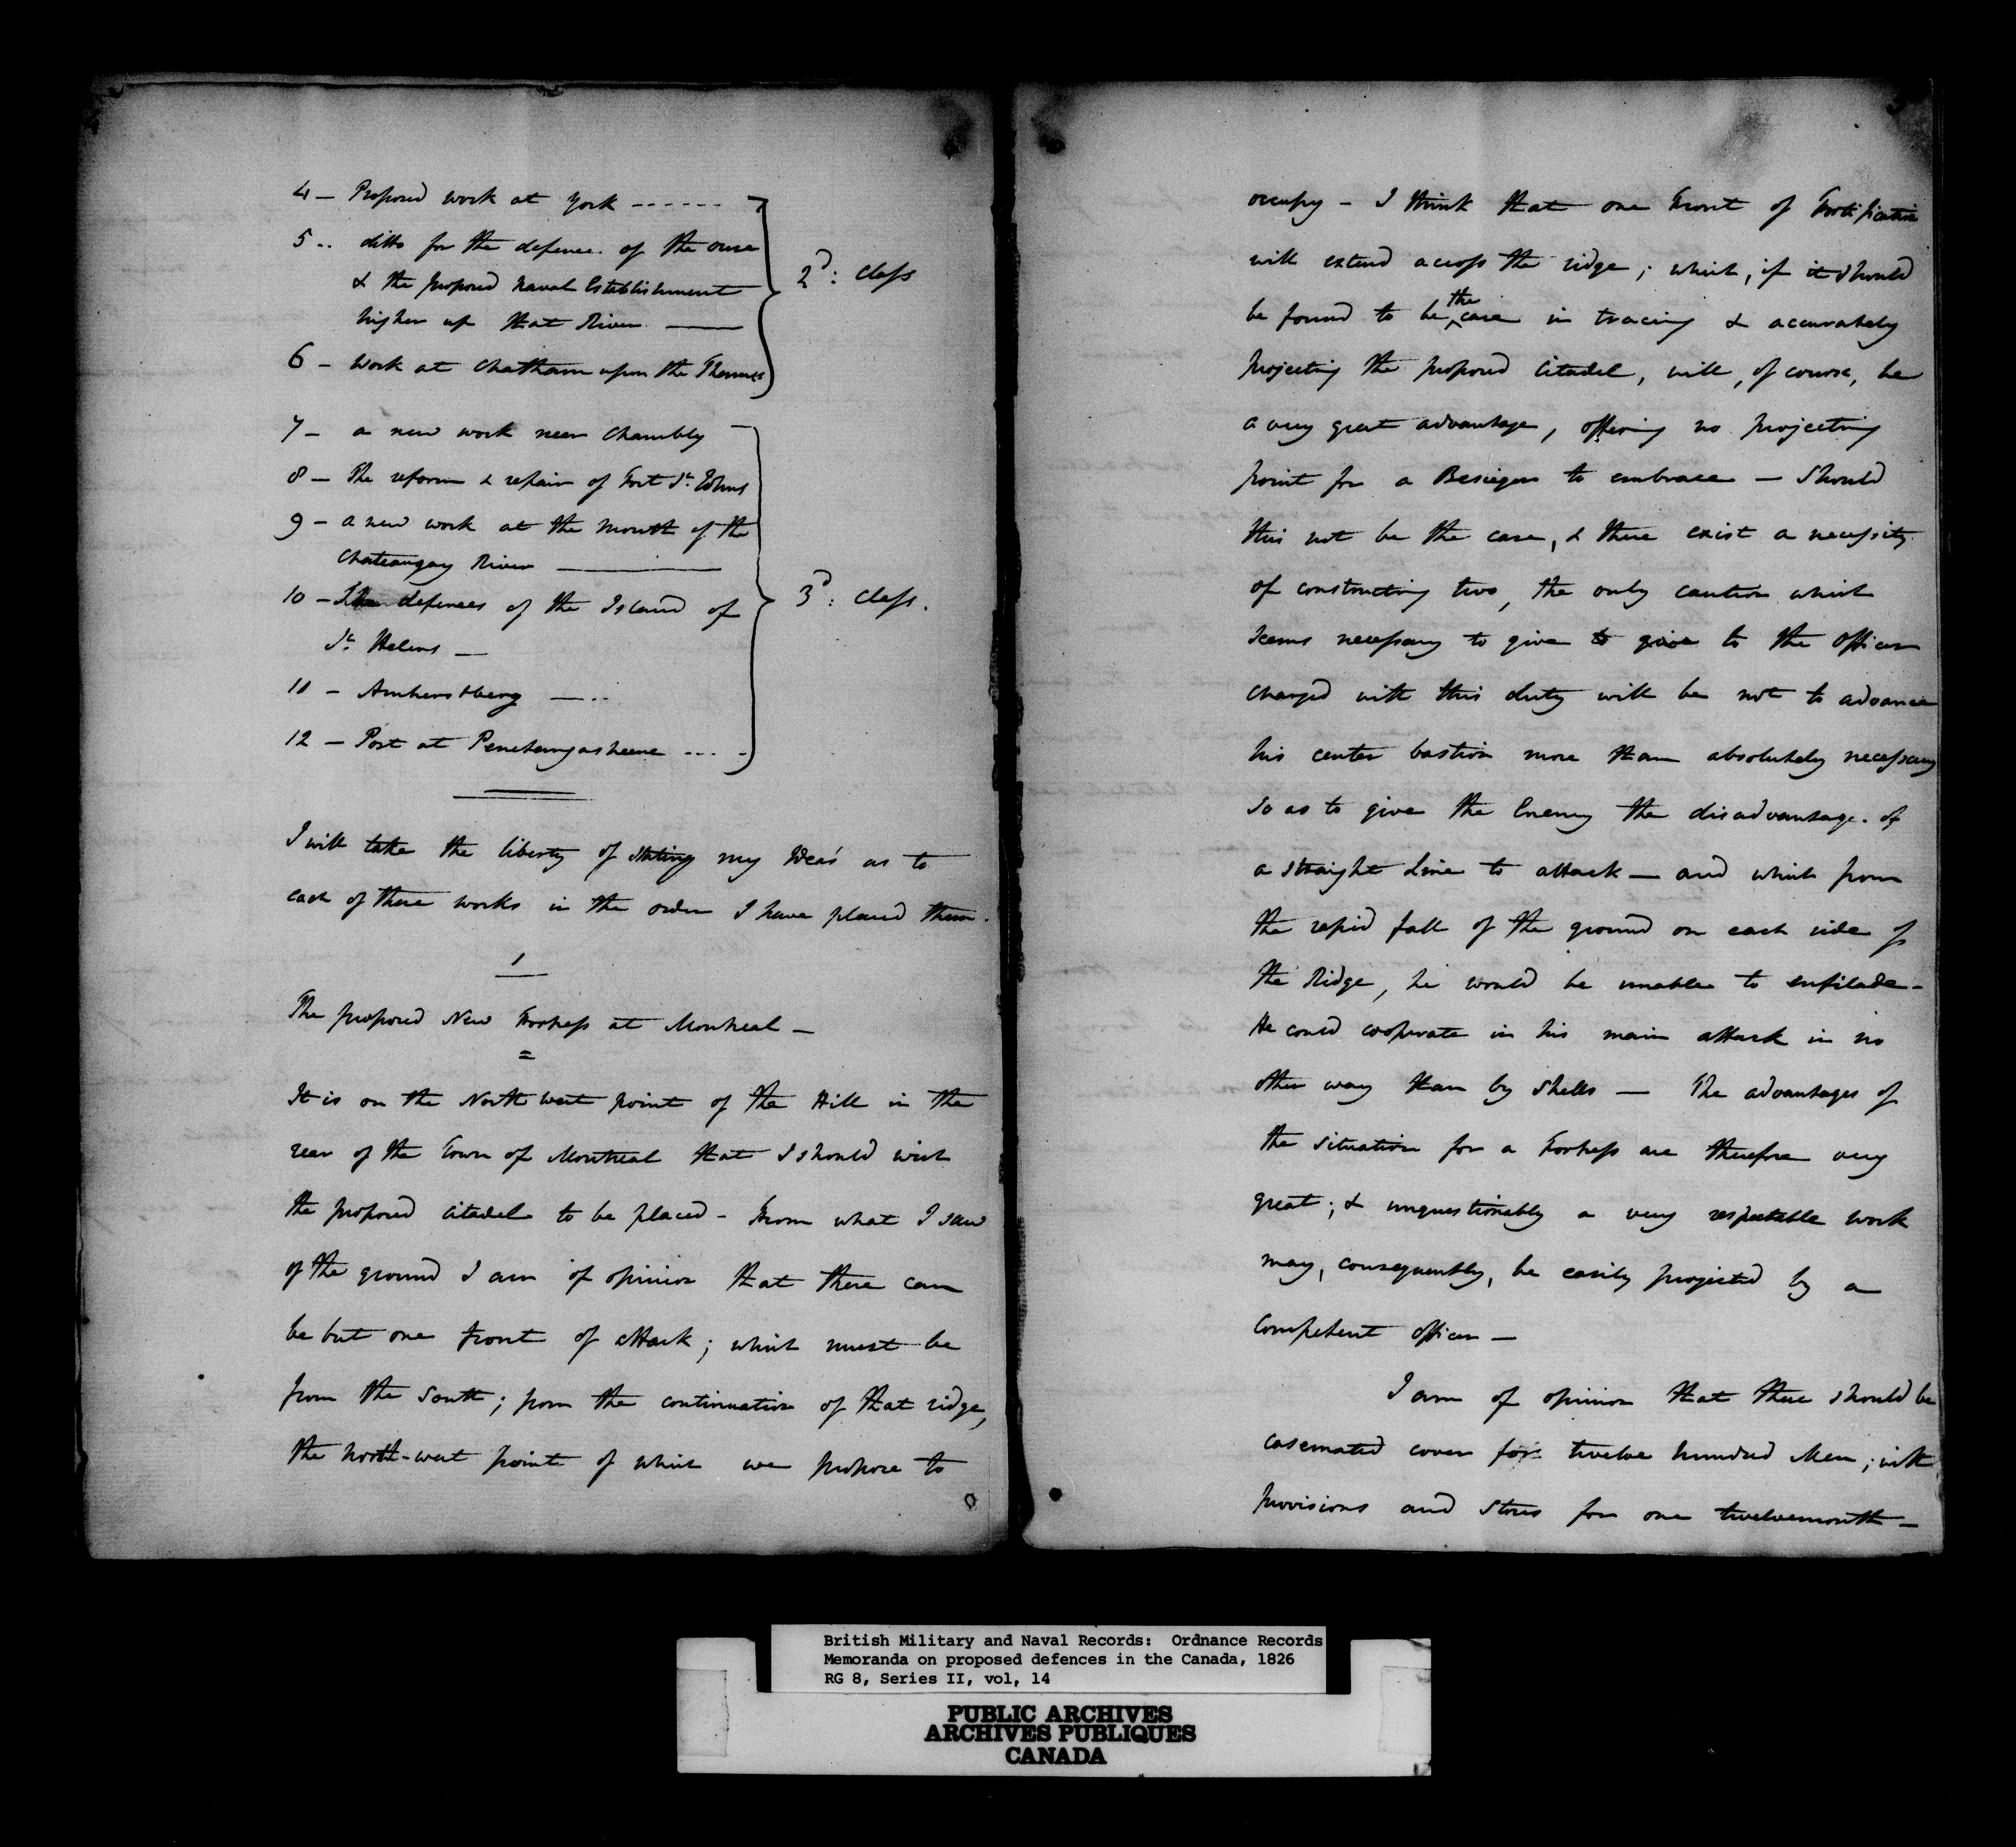 4 – Proposed work at York ------
5 .. ditto for the defence of the ouse
& the proposed Naval Establishment
higher up that River ——
6 – Work at Chatham upon the Thames
2d: class
7 – a new work near Chambly —
8 – The reform & repair of Fort St. Johns
9 – a new work at the mouth of the
Chateaugay River ————
10 – The defences of the Island of
St. Helens —
11 – Amherstberg — ..
12 – Post at Penetangasheene ... .
3d: class.
I will take the liberty of stating my Idea's as to
each of these works in the order I have placed them.
1
The proposed New Fortress at Montreal —
It is on the North west point of the Hill in the
rear of the Town of Montreal that I should wish
the proposed citadel to be placed – From what I saw
of the ground I am of opinion that there can
be but one front of attack; which must be
from the South; from the continuation of that ridge,
the north-west point of which we propose to
occupy – I think that one Front of Fortification
will extend across the ridge; which, if it should
be found to be the case in tracing & accurately
projecting the proposed Citadel, will, of course, be
a very great advantage, offering no projecting
point for a Besieger to embrace — Should
this not be the case, & there exist a necessity
of constructing two, the only caution which
seems necessary to give to give to the officer
charged with this duty will be not to advance
his center bastion more than absolutely necessary
so as to give the Enemy the disadvantage of
a straight Line to attack — and which from
the rapid fall of the ground on each side of
the Ridge, he would be unable to enfilade –
He could cooperate in his main attack in no
other way than by Shells — The advantages of
the situation for a Fortress are therefore very
great; & unquestionably a very respectable work
may, consequently, be easily projected by a
competent officer —
I am of opinion that there should be
casemated cover for twelve hundred Men; with
provisions and Stores for one twelvemonth —
British Military and Naval Records: Ordnance Records
Memoranda on proposed defences in the Canada, 1826
RG 8, Series II, vol, 14
PUBLIC ARCHIVES
ARCHIVES PUBLIQUES
CANADA